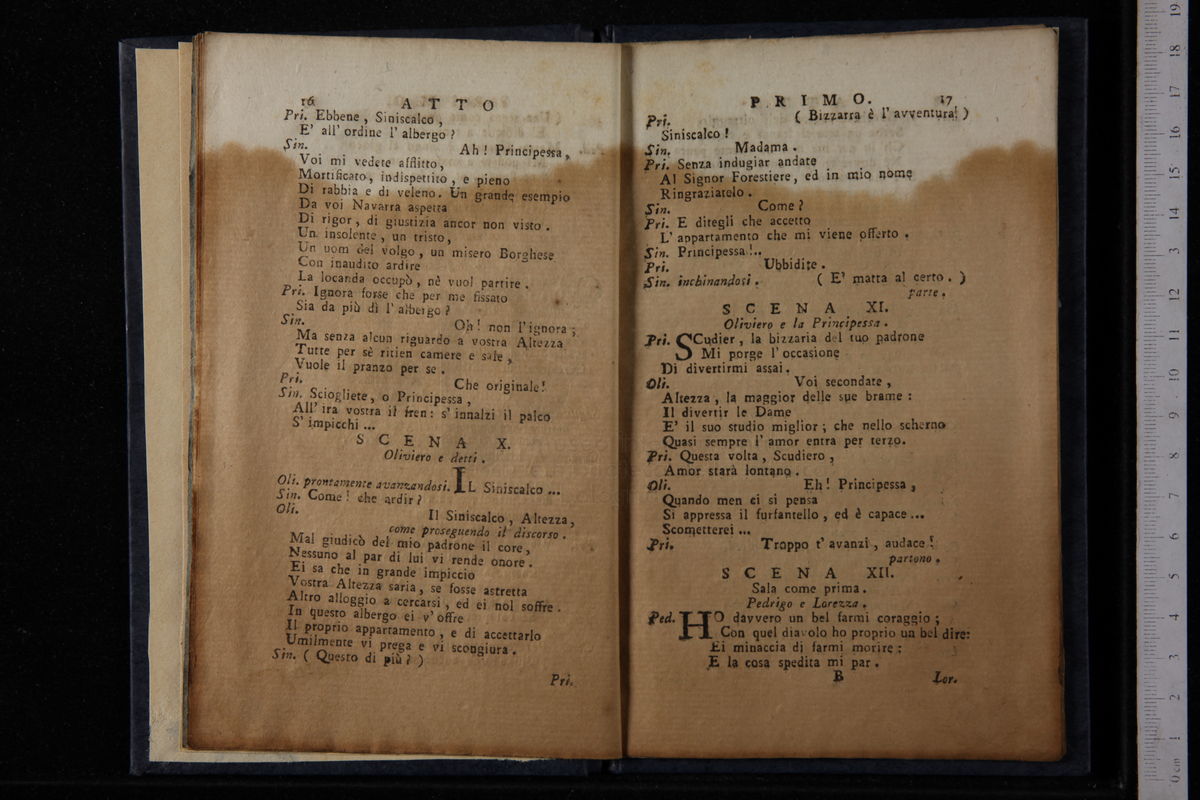 16 ATTO
Pri. Ebbene, Siniscalco,
E' all' ordine l' albergo?
Sin. Ah! Principessa,
Voi mi vedete afflitto,
Mortificato, indispettito, e pieno
Di rabbia e di veleno. Un grande esempio
Da voi Navarra aspetta
Di rigor, di giustizia ancor non visto.
Un insolente, un tristo,
Un uom del volgo, un misero Borghese
Con inaudito ardire
La locanda occupò, nè vuol partire.
Pri. Ignora forse che per me fissato
Sia da più dì l' albergo?
Sin. Oh! non l'ignora;
Ma senza alcun riguardo a vostra Altezza
Tutte per sè ritien camere e sale,
Vuole il pranzo per se.
Pri. Che originale!
Sin. Sciogliete, o Principessa,
All' ira vostra il fren: s' innalzi il palco
S' impicchi ...
SCENA X.
Oliviero e detti.
Oli. prontamente avanzandosi. IL Siniscalco ...
Sin. Come! che ardir?
Oli. Il Siniscalco, Altezza,
come proseguendo il discorso.
Mal giudicò del mio padrone il core,
Nessuno al par di lui vi rende onore.
Ei sa che in grande impiccio
Vostra Altezza saria, se fosse astretta
Altro alloggio a cercarsi, ed ei nol soffre.
In questo albergo ei v' offre
Il proprio appartamento, e di accettarlo
Umilmente vi prega e vi scongiura.
Sin. ( Questo di più? )
Pri.
PRIMO. 17
Pri. ( Bizzarra è l' avventura! )
Siniscalco!
Sin. Madama.
Pri. Senza indugiar andate
Al Signor Forestiere, ed in mio nome
Ringraziatelo.
Sin. Come?
Pri. E ditegli che accetto
L' appartamento che mi viene offerto.
Sin. Principessa!..
Pri. Ubbidite.
Sin. inchinandosi. ( E' matta al certo. )
parte.
SCENA XI.
Oliviero e la Principessa.
Pri. SCudier, la bizzaria del tuo padrone
Mi porge l' occasione
Di divertirmi assai.
Oli. Voi secondate,
Altezza, la maggior delle sue brame:
Il divertir le Dame
E' il suo studio miglior; che nello scherno
Quasi sempre l' amor entra per terzo.
Pri. Questa volta, Scudiero,
Amor starà lontano.
Oli. Eh! Principessa,
Quando men ci si pensa
Si appressa il furfantello, ed è capace ...
Scometterei ...
Pri. Troppo t' avanzi, audace!
partono.
SCENA XII.
Sala come prima.
Pedrigo e Lorezza.
Ped. HO davvero un bel farmi coraggio;
Con quel diavolo ho proprio un bel dire:
Ei minaccia di farmi morire:
E la cosa spedita mi par.
B Lor.
0 cm 1 2 3 4 5 6 7 8 9 10 11 12 13 14 15 16 17 18 19